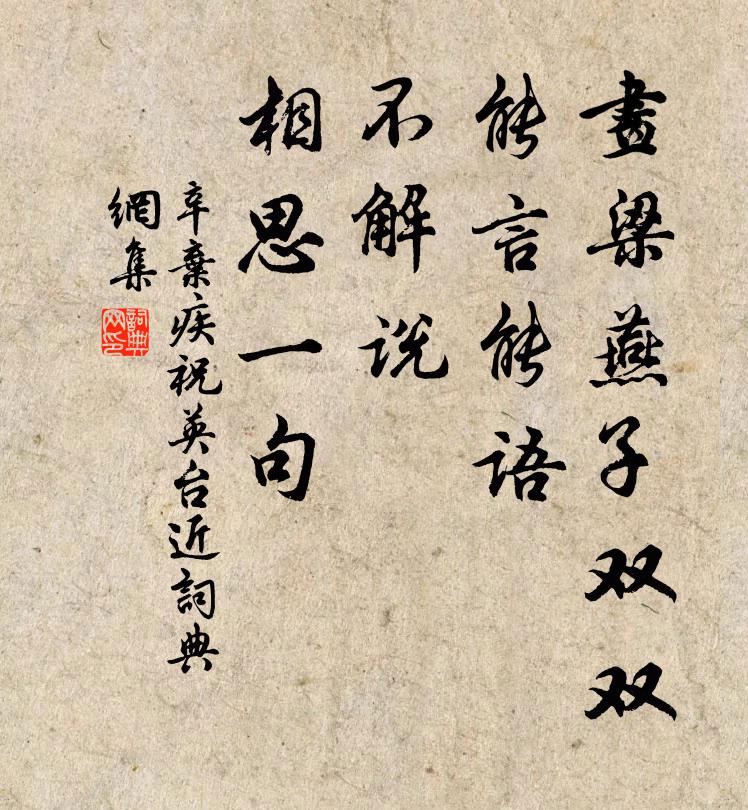 畫梁燕子双双
能言能语
不解说
相思一句
辛棄疾祝英台近詞典
網集
詞典
网印